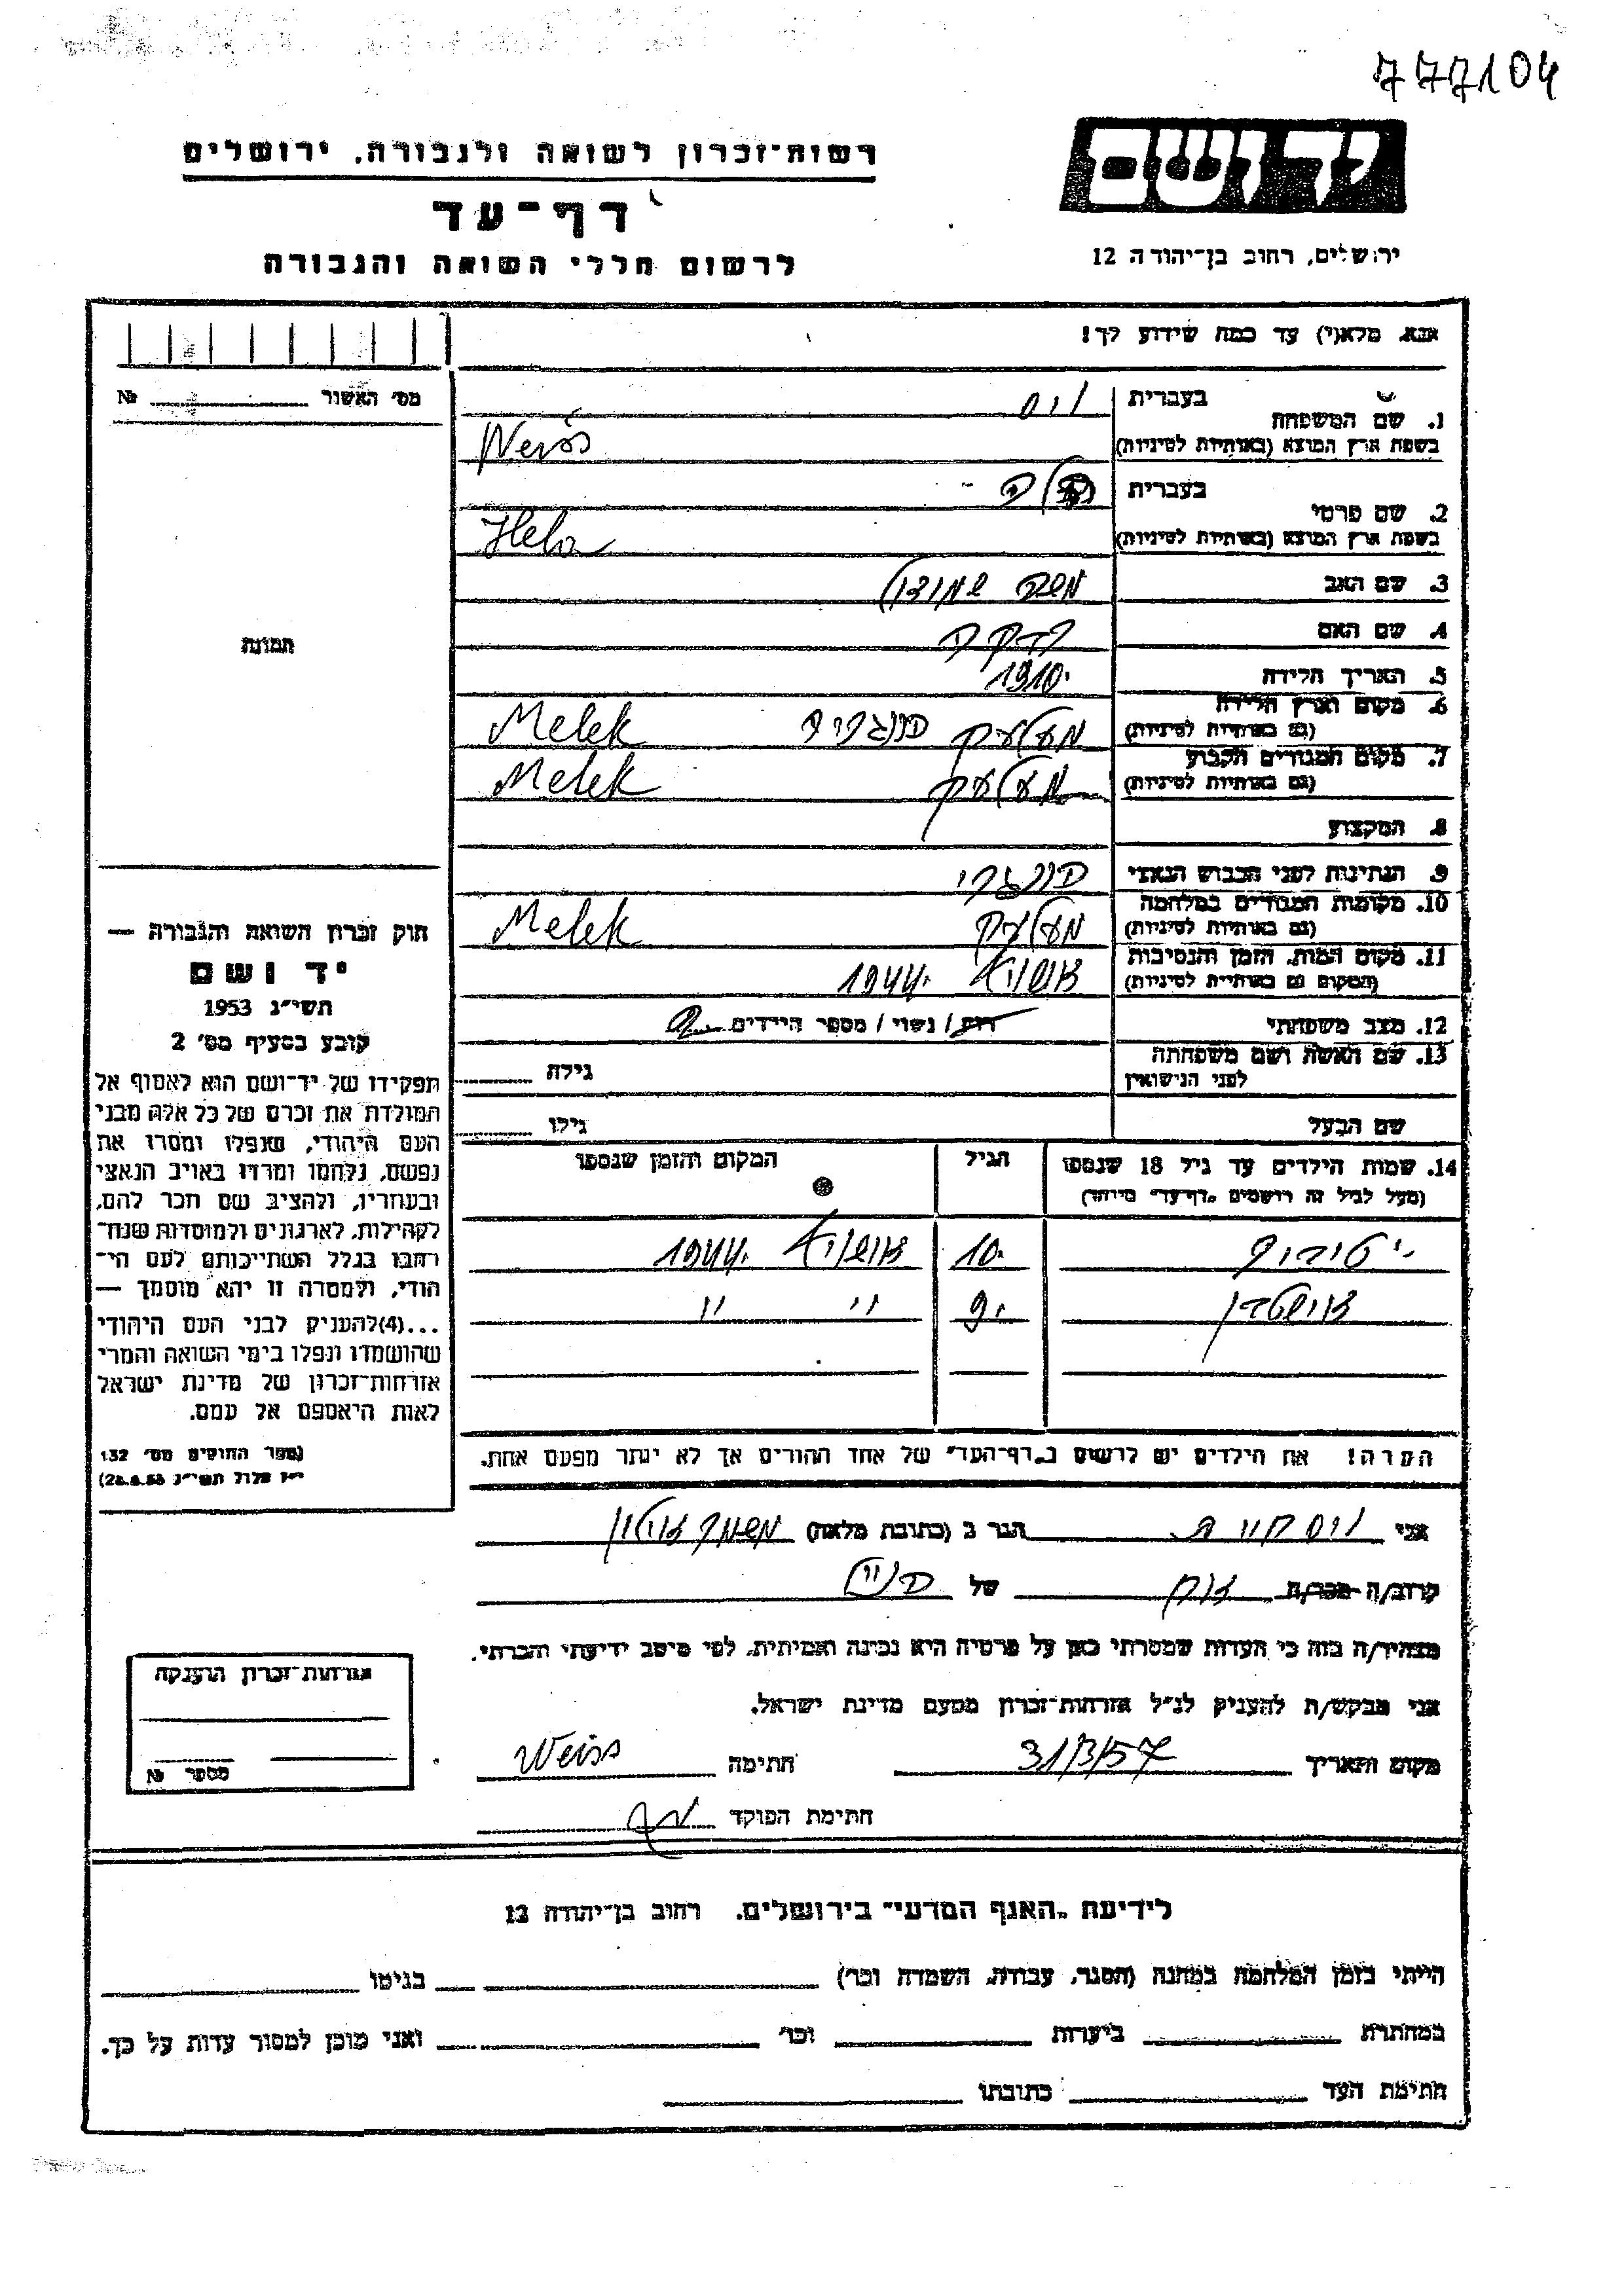 777104
ידושם
ירושלים, רחוב בן־יהודה 12
רשות־זכרון לשואה ולגבורה, ירושלים
דף־עד
לרשום חללי השואה והגבורה
אנא, מלא(י) עד כמה שידוע לך!
מס׳ האשור № 
1. שם המשפחה בעברית ויס
בשפת ארץ המוצא (באותיות לטיניות) Weiss
2. שם פרטי בעברית
בשפת ארץ המוצא (באותיות לטיניות)
3. שם האב משה
4. שם האם
5. תאריך הלידה 1910
6. מקום וארץ הלידה מעלעק הונגריה Melek
(גם באותיות לטיניות)
7. מקום המגורים הקבוע מעלעק Melek
(גם באותיות לטיניות)
8. המקצוע
9. הנתינות לפני הכבוש הנאצי הונגרי
10. מקומות המגורים במלחמה מעלעק Melek
(גם באותיות לטיניות)
11. מקום המות, הזמן והנסיבות אושויץ 1944
(המקום גם באותיות לטיניות)
12. מצב משפחתי רוק / נשוי / מספר הילדים
13. שם האשה ושם משפחתה לפני הנישואין גילה
שם הבעל גילו
14. שמות הילדים עד גיל 18 שנספו הגיל המקום והזמן שנספו
(מעל לגיל זה רושמים „דף־עד״ מיוחד)
10 אושויץ 1944
9 " "
הערה! את הילדים יש לרשום ב„דף־העד״ של אחד ההורים אך לא יותר מפעם אחת.
תמונה
חוק זכרון השואה והגבורה —
יד ושם
תשי״ג 1953
קובע בסעיף מס׳ 2
תפקידו של יד־ושם הוא לאסוף אל
המולדת את זכרם של כל אלה מבני
העם היהודי, שנפלו ומסרו את
נפשם, נלחמו ומרדו באויב הנאצי
ובעוזריו, ולהציב שם וזכר להם,
לקהילות, לארגונים ולמוסדות שנח־
רבו בגלל השתייכותם לעם הי־
הודי, ולמטרה זו יהא מוסמך —
...(4)להעניק לבני העם היהודי
שהושמדו ונפלו בימי השואה והמרי
אזרחות־זכרון של מדינת ישראל
לאות היאספם אל עמם.
(ספר החוקים מס׳ 132
י״ז אלול תשי״ג 28.8.53)
אני ויס הגר ב (כתובת מלאה) משמר
קרוב/ה מכר/ה אח של
מצהיר/ה בזה כי העדות שמסרתי כאן על פרטיה היא נכונה ואמיתית, לפי מיטב ידיעתי והכרתי.
אני מבקש/ת להעניק לנ״ל אזרחות־זכרון מטעם מדינת ישראל.
מקום ותאריך 31/3/57 חתימה Weiss
חתימת הפוקד
אזרחות־זכרון הוענקה
מספר №
לידיעת „האגף המדעי״ בירושלים. רחוב בן־יהודה 12
הייתי בזמן המלחמה במחנה (הסגר, עבודה, השמדה וכו׳) בגיטו
במחתרת ביערות וכו׳ ואני מוכן למסור עדות על כך.
חתימת העד כתובתו